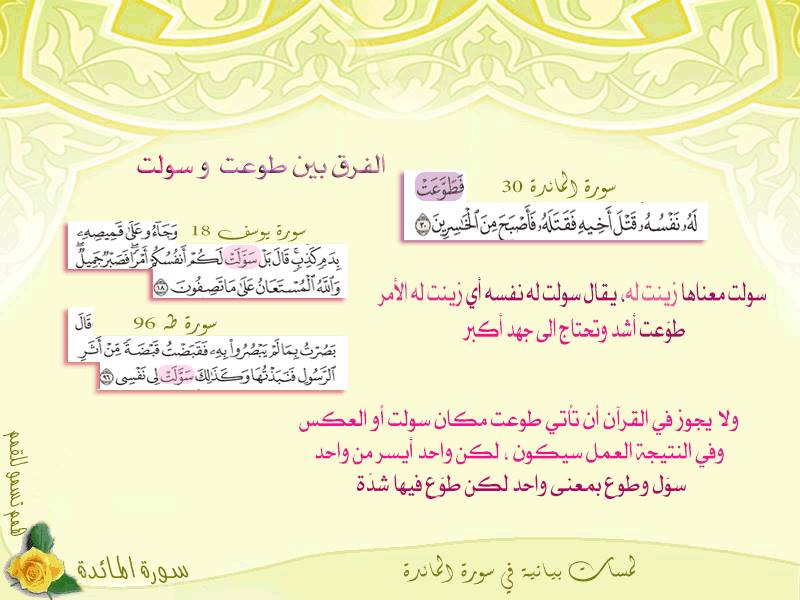 الفرق بين طوعت و سولت
سورة المائدة 30
فَطَوَّعَتْ
لَهُۥ نَفْسُهُۥ قَتْلَ أَخِيهِ فَقَتَلَهُۥ فَأَصْبَحَ مِنَ ٱلْخَٰسِرِينَ ٣٠
سورة يوسف 18
وَجَآءُو عَلَىٰ قَمِيصِهِۦ
بِدَمٍ كَذِبٍ ۚ قَالَ بَلْ سَوَّلَتْ لَكُمْ أَنفُسُكُمْ أَمْرًا ۖ فَصَبْرٌ جَمِيلٌ ۖ
وَٱللَّهُ ٱلْمُسْتَعَانُ عَلَىٰ مَا تَصِفُونَ ١٨
سورة طه 96
قَالَ
بَصُرْتُ بِمَا لَمْ يَبْصُرُوا۟ بِهِۦ فَقَبَضْتُ قَبْضَةً مِّنْ أَثَرِ
ٱلرَّسُولِ فَنَبَذْتُهَا وَكَذَٰلِكَ سَوَّلَتْ لِى نَفْسِى ٩٦
سولت معناها زينت له، يقال سولت له نفسه أي زينت له الأمر
طوّعت أشد وتحتاج الى جهد أكبر
ولا يجوز في القرآن أن تأتي طوعت مكان سولت أو العكس
وفي النتيجة العمل سيكون ، لكن واحد أيسر من واحد
سوّل وطوع بمعنى واحد لكن طوّع فيها شدّة
همم تسمو للقمم
سورة المائدة
لمسات بيانية في سورة المائدة